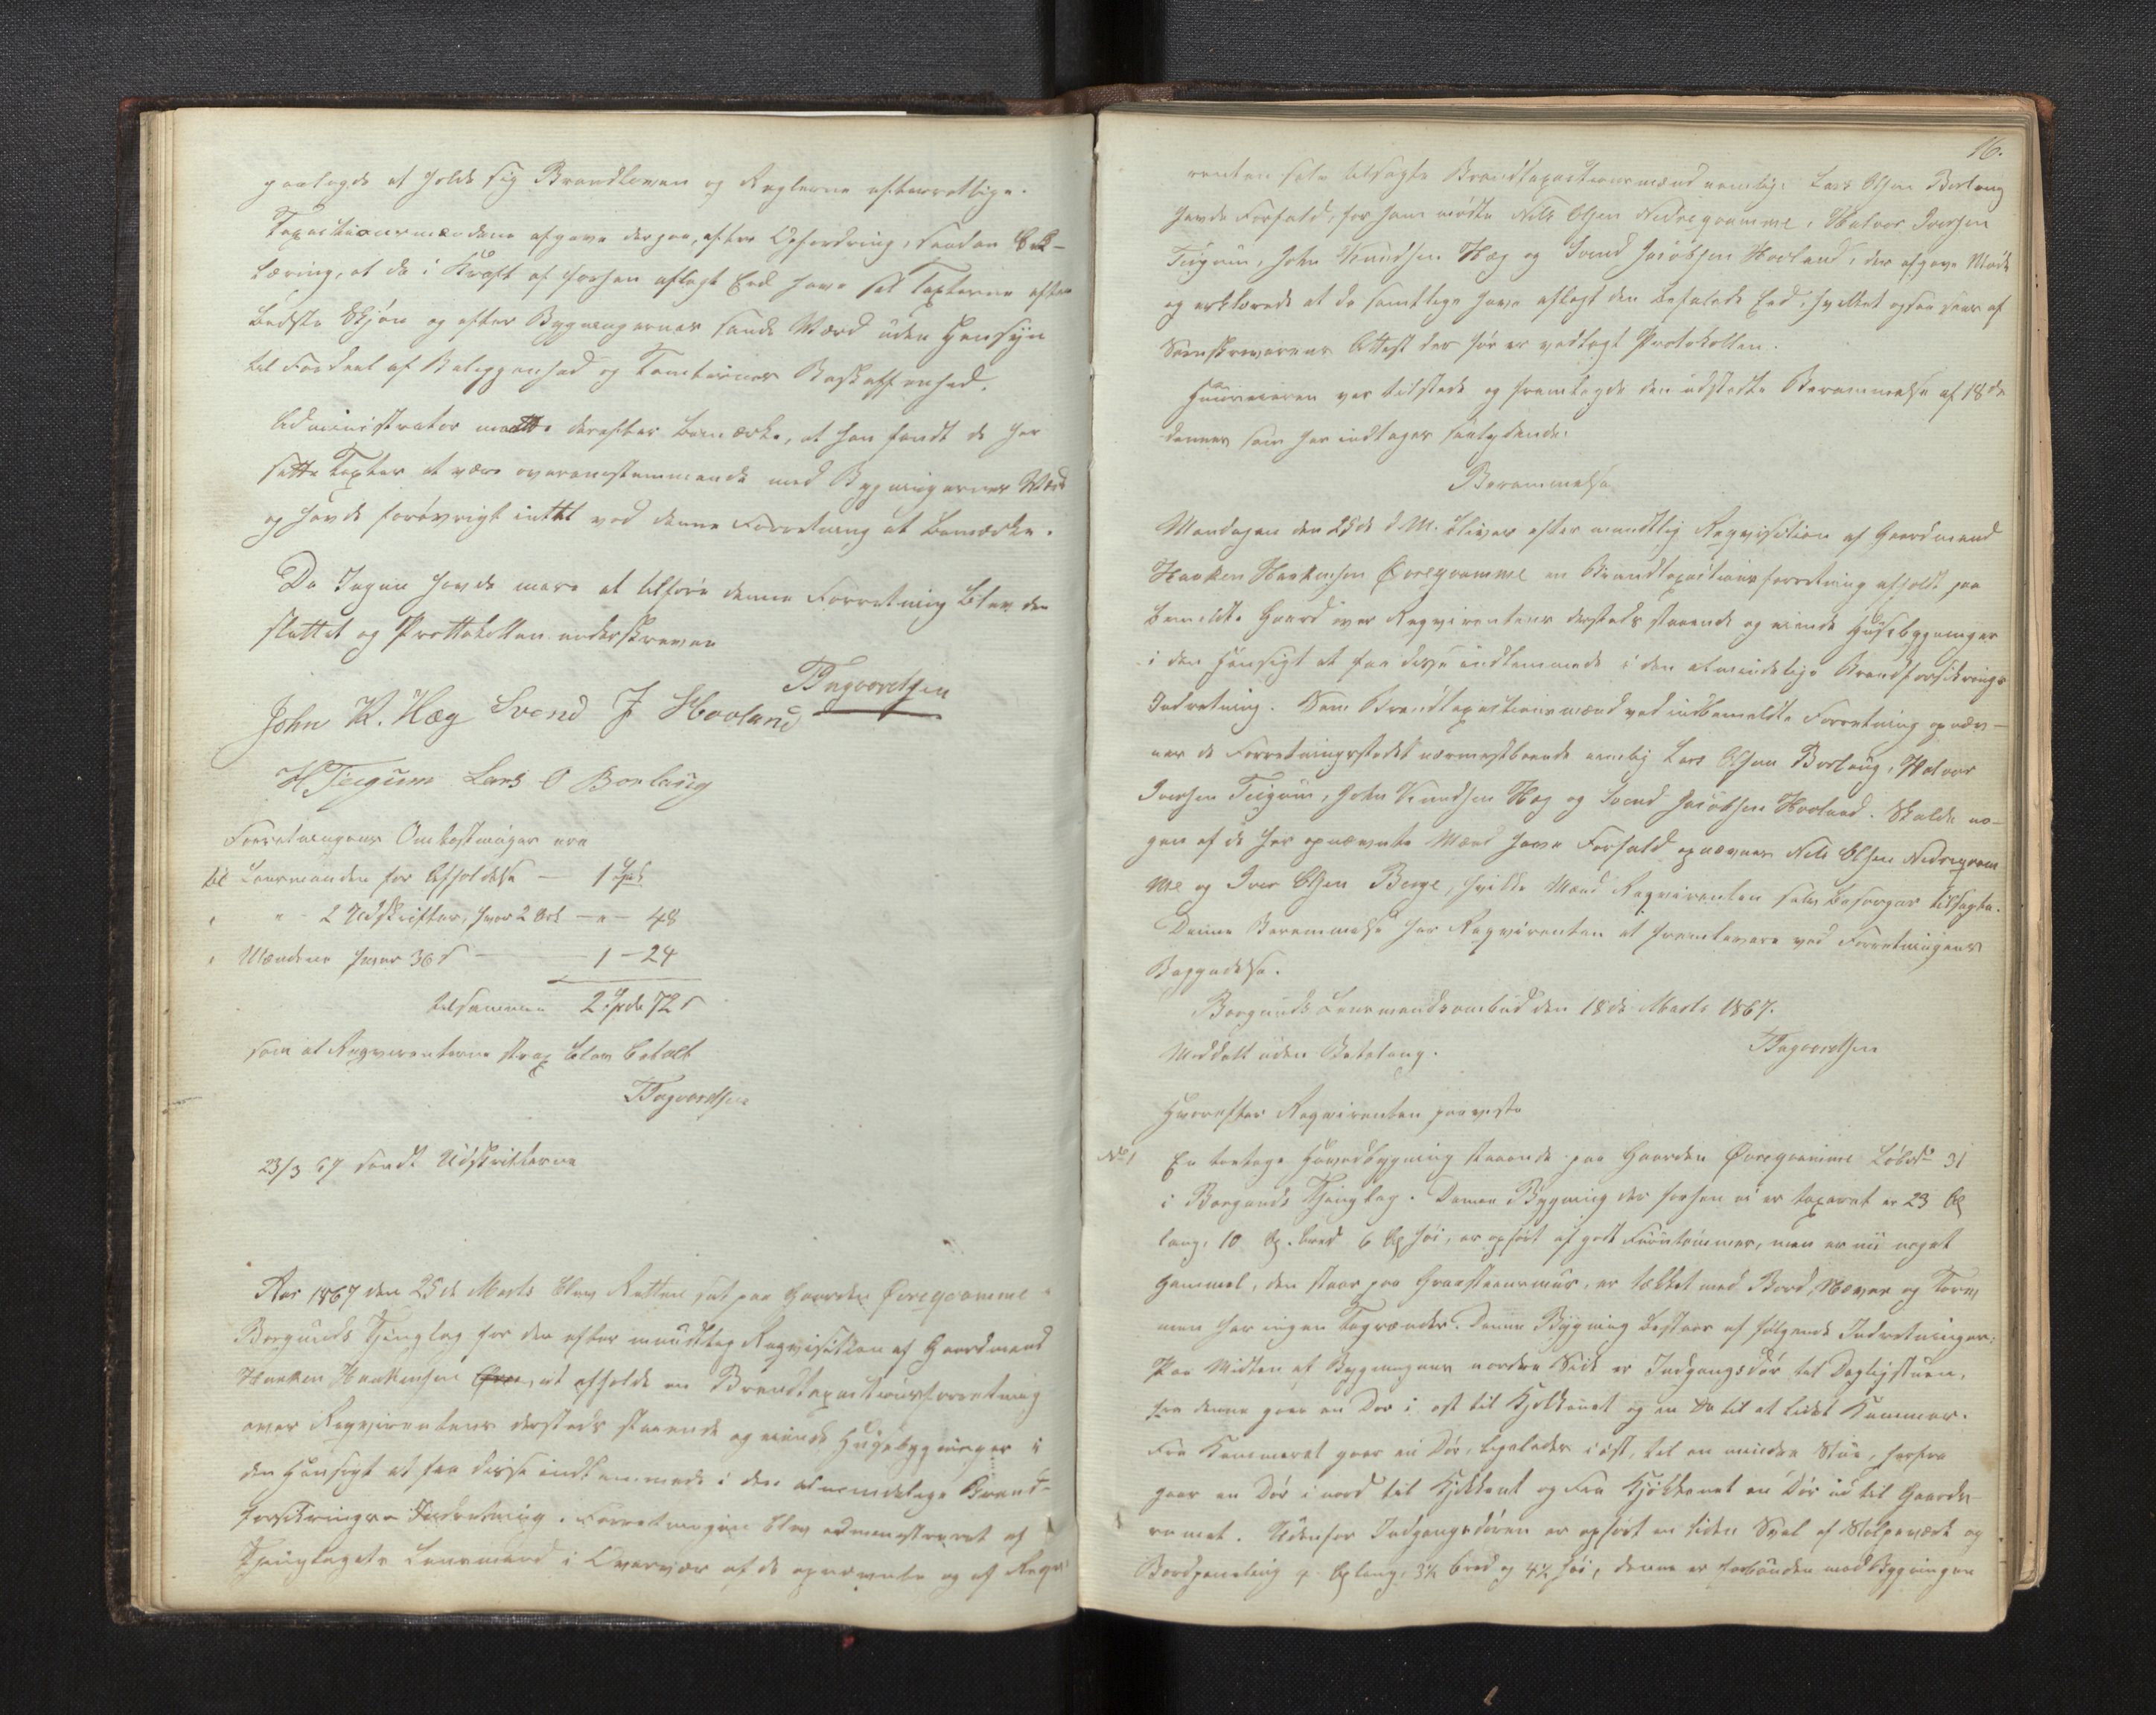 paalagde at holde sig Brandloven og Reglerne efterrettlige.
Taxationsmændene afgave derpaa, efter Opfordring, saadan Erk-
læring, at de i Kraft af forhen aflagt Eed have sat Taxterne efter
bedste Skjøn og efter Bygningernes sande Værd uden Hensyn
til Fordeel af Beliggenhed og Tomternes Beskaffenhed.
Administrator maatte derefter bemærke, at han fandt de her
satte Taxter at være overenstemmende med Bygningernes Værd
og havde forøvrigt inttet ved denne Forretning at bemærke.
Da Ingen havde mere at tilføre denne Forretning blev den
sluttet og Prottokollen underskreven
TDagvordsen
John K. Hæg Svend J Hovland
H Teigum Lars O Borlaug
Forretningens Omkostninger ere
til Lensmanden for Afholdelse — 1 Spd
" " - 2 Udskrifter, hver 2 Ort — " — 48
" Mændene hver 36 s — 1 — 24
tilsammen 2 Spd 72 s
som af Reqvirenterne strax blev betalt
TDagvordsen
23/3 67 sendt Udskrifterne
Aar 1867 den 25de Marts blev Retten sat paa Gaarden Øvregramme i
Borgunds Thinglag for der efter mundtlig Reqvisition af Gaardmand
Haaken Haakensen Øvre, at afholde en Brandtaxationsforretning
over Reqvirentens dersteds staaende og eiende Husebygninger i
den Hensigt at faa disse indlemmede i den almindelige Brand-
forsikrings Indretning. Forretningen blev administreret af
Thinglagets Lensmand i Overvær af de opnævnte og af Reqvi-
16.
renten selv tilsagte Brandtaxationsmænd nemlig: Lars Olsen Borlaug
havde Forfald, for ham mødte Nils Olsen Nedregramme, Halvor Iversen
Teigum, John Knudsen Hæg og Svend Jacobsen Hovland, der afgave Møde
og erklærede at de samtlige have aflagt den befalede Eed, hvilket ogsaa sees af
Sorenskriverens Attest der før er vedlagt Protokollen.
Huuseieren var tilstede og fremlagde den udstedte Berammelse af 18de
dennes som her indtages saalydende:
Berammelse
Mandagen den 25de d. M. bliver efter mundtlig Reqvisition af Gaardmand
Haaken Haakensen Øvregramme en Brandtaxationsforretning afholdt paa
bemeldte Gaard over Reqvirentens dersteds staaende og eiende Husebygninger
i den Hensigt at faa disse indlemmede i den almindelige Brandforsikrings
Indretning. Som Brandtaxationsmænd ved indbemeldte Forretning opnæv-
nes de Forretningsstedet nærmestboende nemlig Lars Olsen Borlaug, Halvor
Iversen Teigum, John Knudsen Hæg og Svend Jacobsen Hovland. Skulde no-
gen af de her opnævnte Mænd have Forfald opnævnes Nils Olsen Nedregram
me og Iver Olsen Berge, hvilke Mænd Reqvirenten selv besørger tilsagte.
Denne Berammelse har Reqvirenten at fremlevere ved Forretningens
Begyndelse.
Borgunds Lensmandsombud den 18de Marts 1867.
TDagvordsen
Meddelt uden Betaling.
Hvorefter Reqvirenten paaviste
No 1 En toetages Hovedbygning staaende paa Gaarden Øvregramme Løbno 31
i Borgunds Thinglag. Denne Bygning der forhen ei er taxeret er 23 Al
lang, 10 Al. bred 6 Al høi, er opført af godt Furutømmer, men er nu noget
gammel, den staar paa Graasteensmur, er tækket med Bord, Næver og Torv,
men har ingen Tagrender. Denne Bygning bestaar af følgende Indretninger:
Paa Midten af Bygningens nordre Side er Indgangsdør til Dagligstuen,
fra denne gaar en Dør i øst til Kjøkkenet og en Do til et lidet Kammer.
Fra Kammeret gaar en Dør, ligeledes i øst, til en mindre Stue, herfra
gaar en Dør i nord til Kjøkkenet og fra Kjøkkenet en Dør ud til Gaards-
rummet. Udenfor Indgangsdøren er opført en liden Sval af Stolpeværk og
Bordpaneling 4 Al lang, 3½ bred og 4½ høi, denne er forbunden med Bygningen